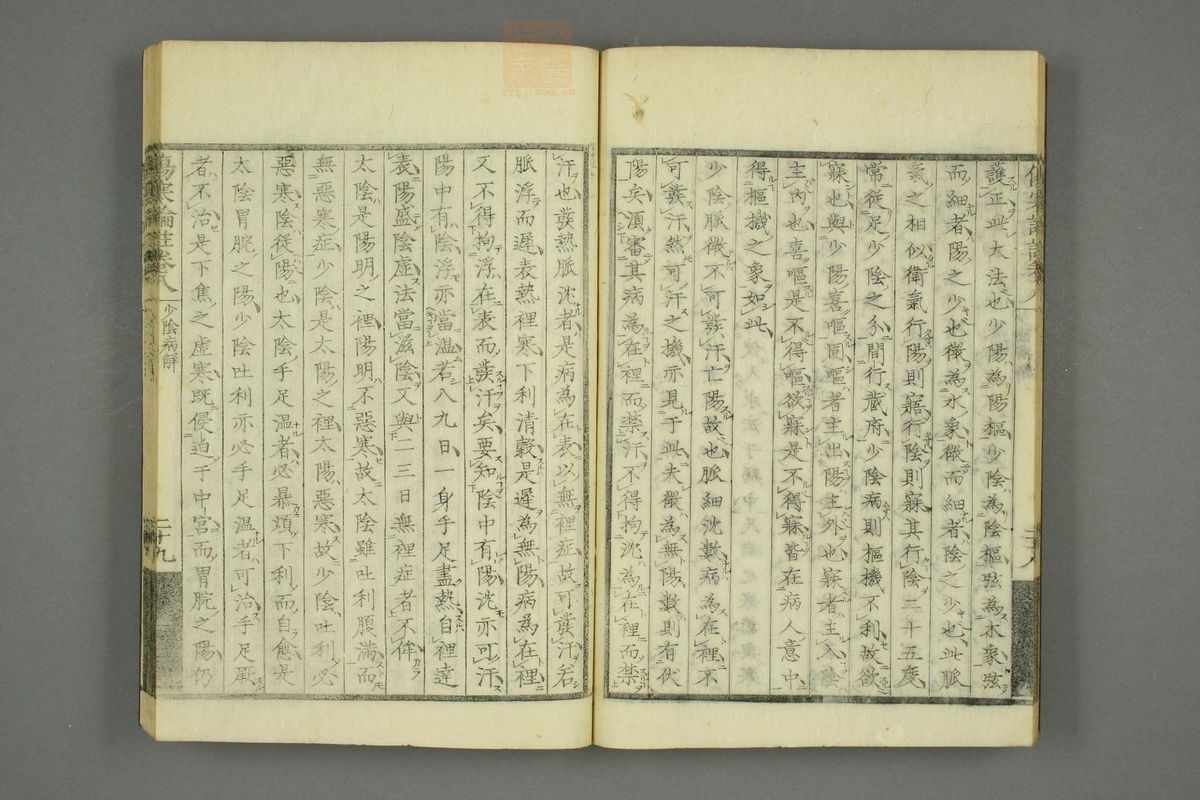 護正此大法也少陽為陽樞少陰為陰樞弦為木象弦
而細者陽之少也微為水象微而細者陰之少也此脈
氣之相似衛氣行陽則寤行陰則寐其行陰二十五度
常從足少陰之分間行藏府少陰病則樞機不利故欲
寐也與少陽喜嘔同嘔者主出陽主外也寐者主入陰
主內也喜嘔是不得嘔欲寐是不得寐皆在病人意中
得樞機之象如此
少陰脈微不可發汗亡陽故也脈細沈數病為在裡不
可發汗然可汗之機亦見于此夫微為無陽數則有伏
陽矣須審其病為在裡而禁汗不得拘沈為在裡而禁
汗也發熱脈沈者是病為在表以無裡症故可發汗若
脈浮而遲表熱裡寒下利清穀是遲為無陽病為在裡
又不得拘浮在表而發汗矣要知陰中有陽沈亦可汗
陽中有陰浮亦當温若八九日一身手足盡熱自裡達
表陽盛陰虛法當滋陰又與二三日無裡症者不侔
太陰是陽明之裡陽明不惡寒故太陰雖吐利腹滿而
無惡寒症少陰是太陽之裡太陽惡寒故少陰吐利必
惡寒陰從陽也太陰手足温者必暴煩下利而自愈是
太陰胃脘之陽少陰吐利亦必手足温者可治手足厥
者不治是下焦之虛寒既侵迫于中宮而胃脘之陽仍
傷寒論註卷八 少陰病解 二十九